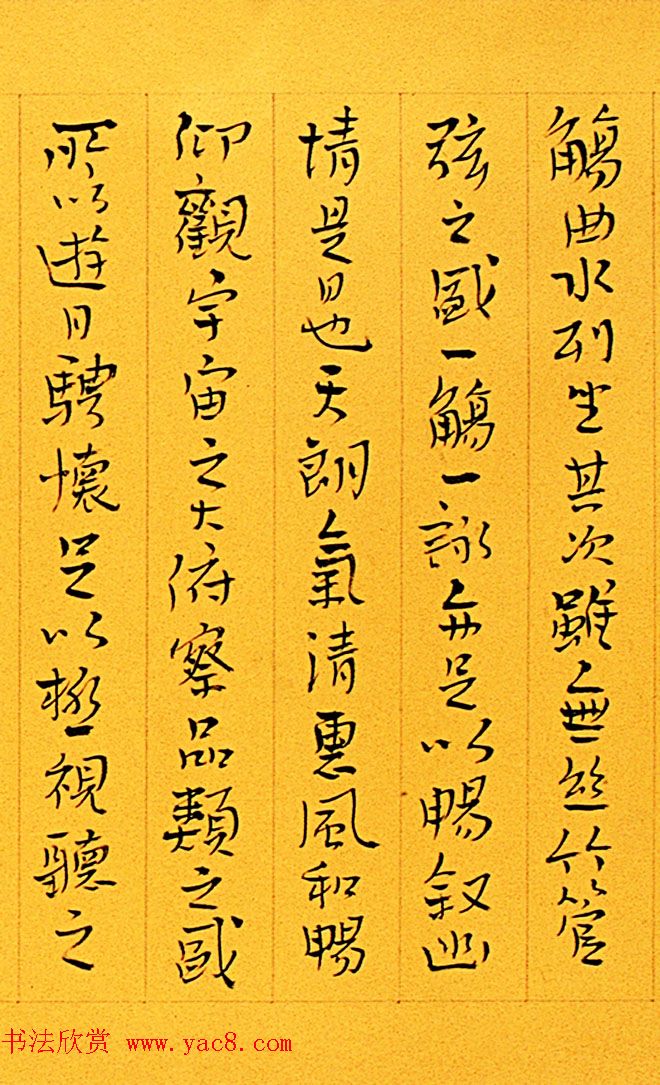 觴曲水列坐其次雖無絲竹管
弦之盛一觴一詠亦足以暢叙幽
情是日也天朗氣清惠風和暢
仰觀宇宙之大俯察品類之盛
所以遊目騁懷足以極視聽之
书法欣赏 www.yac8.com